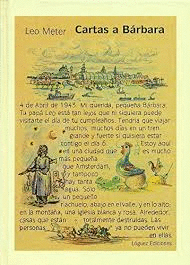 Leo Meter
Cartas a Bárbara
4 de Abril de 1943. Mi querida, pequeña Bárbara:
Tu papá Leo está tan lejos que ni siquiera puede
visitarte el día de tu cumpleaños. Tendría que viajar
muchos, muchos días en un tren
grande y fuerte si quisiera estar
contigo el día 6. Estoy aquí
en una ciudad que es mucho
más pequeña
que Amsterdam,
y tampoco
hay tanta
agua. Sólo
un pequeño
riachuelo, abajo en el valle, y en lo alto,
en la montaña, una iglesia blanca y rosa. Alrededor,
casas que están totalmente destruidas. Las
personas, ya no pueden vivir
en ellas.
Lóguez Ediciones